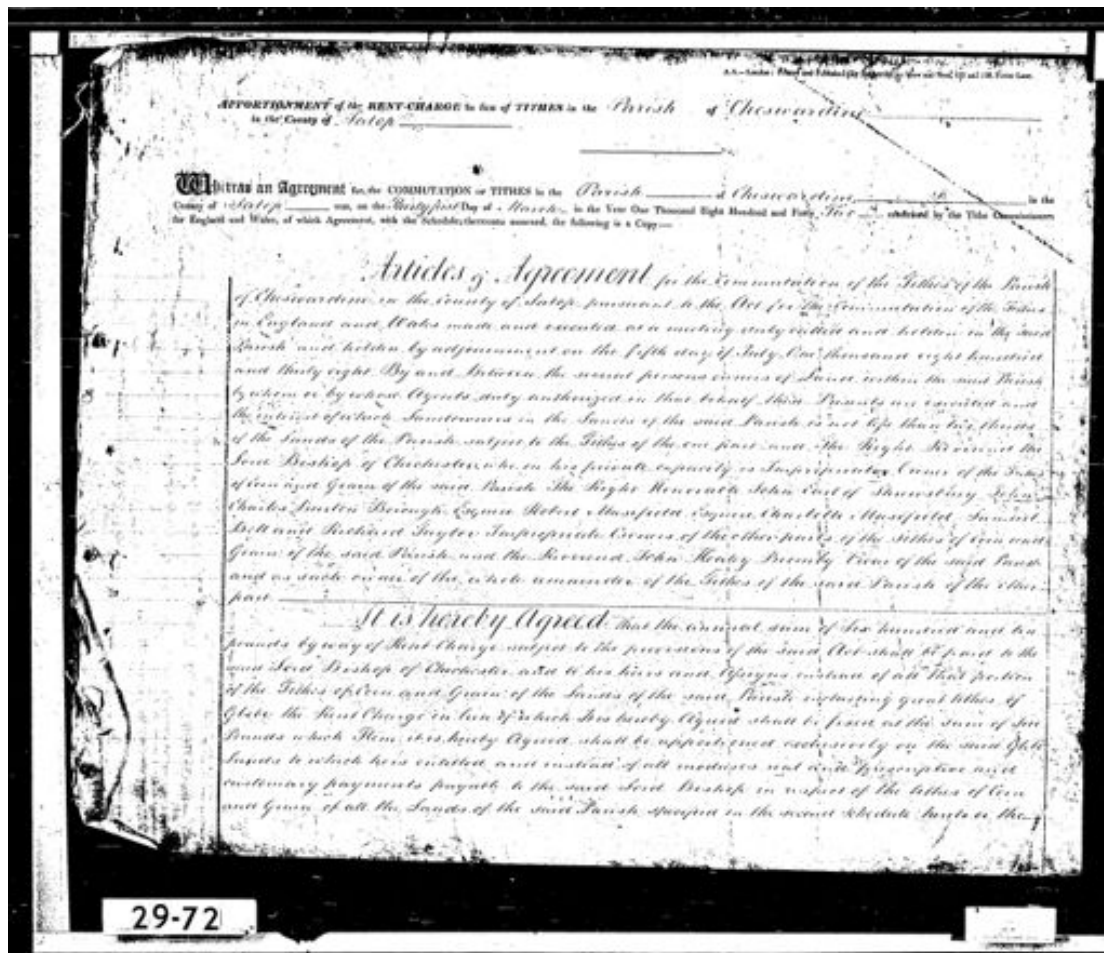 APPORTIONMENT of the RENT-CHARGE in lieu of TITHES in the Parish of Cheswardine
in the County of Salop
Whereas an Agreement for the COMMUTATION OF TITHES in the Parish of Cheswardine in the
County of Salop was, on the Thirty first Day of March in the Year One Thousand Eight Hundred and Forty confirmed by the Tithe Commissioners
for England and Wales, of which Agreement, with the Schedule thereunto annexed, the following is a Copy:—
Articles of Agreement for the Commutation of the Tithes of the Parish
of Cheswardine in the County of Salop pursuant to the Act for the Commutation of the Tithes
in England and Wales made and executed at a meeting duly called and holden in the said
Parish and holden by adjournment on the fifth day of July One thousand eight hundred
and thirty eight By and Between the several persons owners of Land within the said Parish
by whom or by whose Agents duly authorized in that behalf these Presents are executed and
the interest of which Landowners in the Lands of the said Parish is not less than two thirds
of the Lands of the Parish subject to the Tithes of the one part and The Right Reverend the
Lord Bishop of Chichester who in his private capacity is Impropriator Owner of the Tithes
of Corn and Grain of the said Parish The Right Honorable John Earl of Shrewsbury John
Charles Burton Borough Esquire Robert Masefield Esquire Charlotte Masefield Samuel
and Richard Taylor Impropriate Owners of the other parts of the tithes of Corn and
Grain of the said Parish and the Reverend John Vicar of the said Parish
and as such owner of the whole remainder of the Tithes of the said Parish of the other
part
It is hereby Agreed that the annual sum of Six hundred and ten
pounds by way of Rent Charge subject to the provisions of the said Act shall be paid to the
said Lord Bishop of Chichester and to his heirs and Assigns instead of all that portion
of the Tithes of Corn and Grain of the Lands of the said Parish including great tithes of
Glebe the Rent Charge in lieu of which it is hereby Agreed shall be fixed at the sum of
Pounds which it is hereby Agreed shall be apportioned exclusively on the said Glebe
Lands to which he is entitled and instead of all moduses and prescriptive and
customary payments payable to the said Lord Bishop in respect of the tithes of Corn
and Grain of all the Lands of the said Parish specified in the second Schedule hereto
29-72